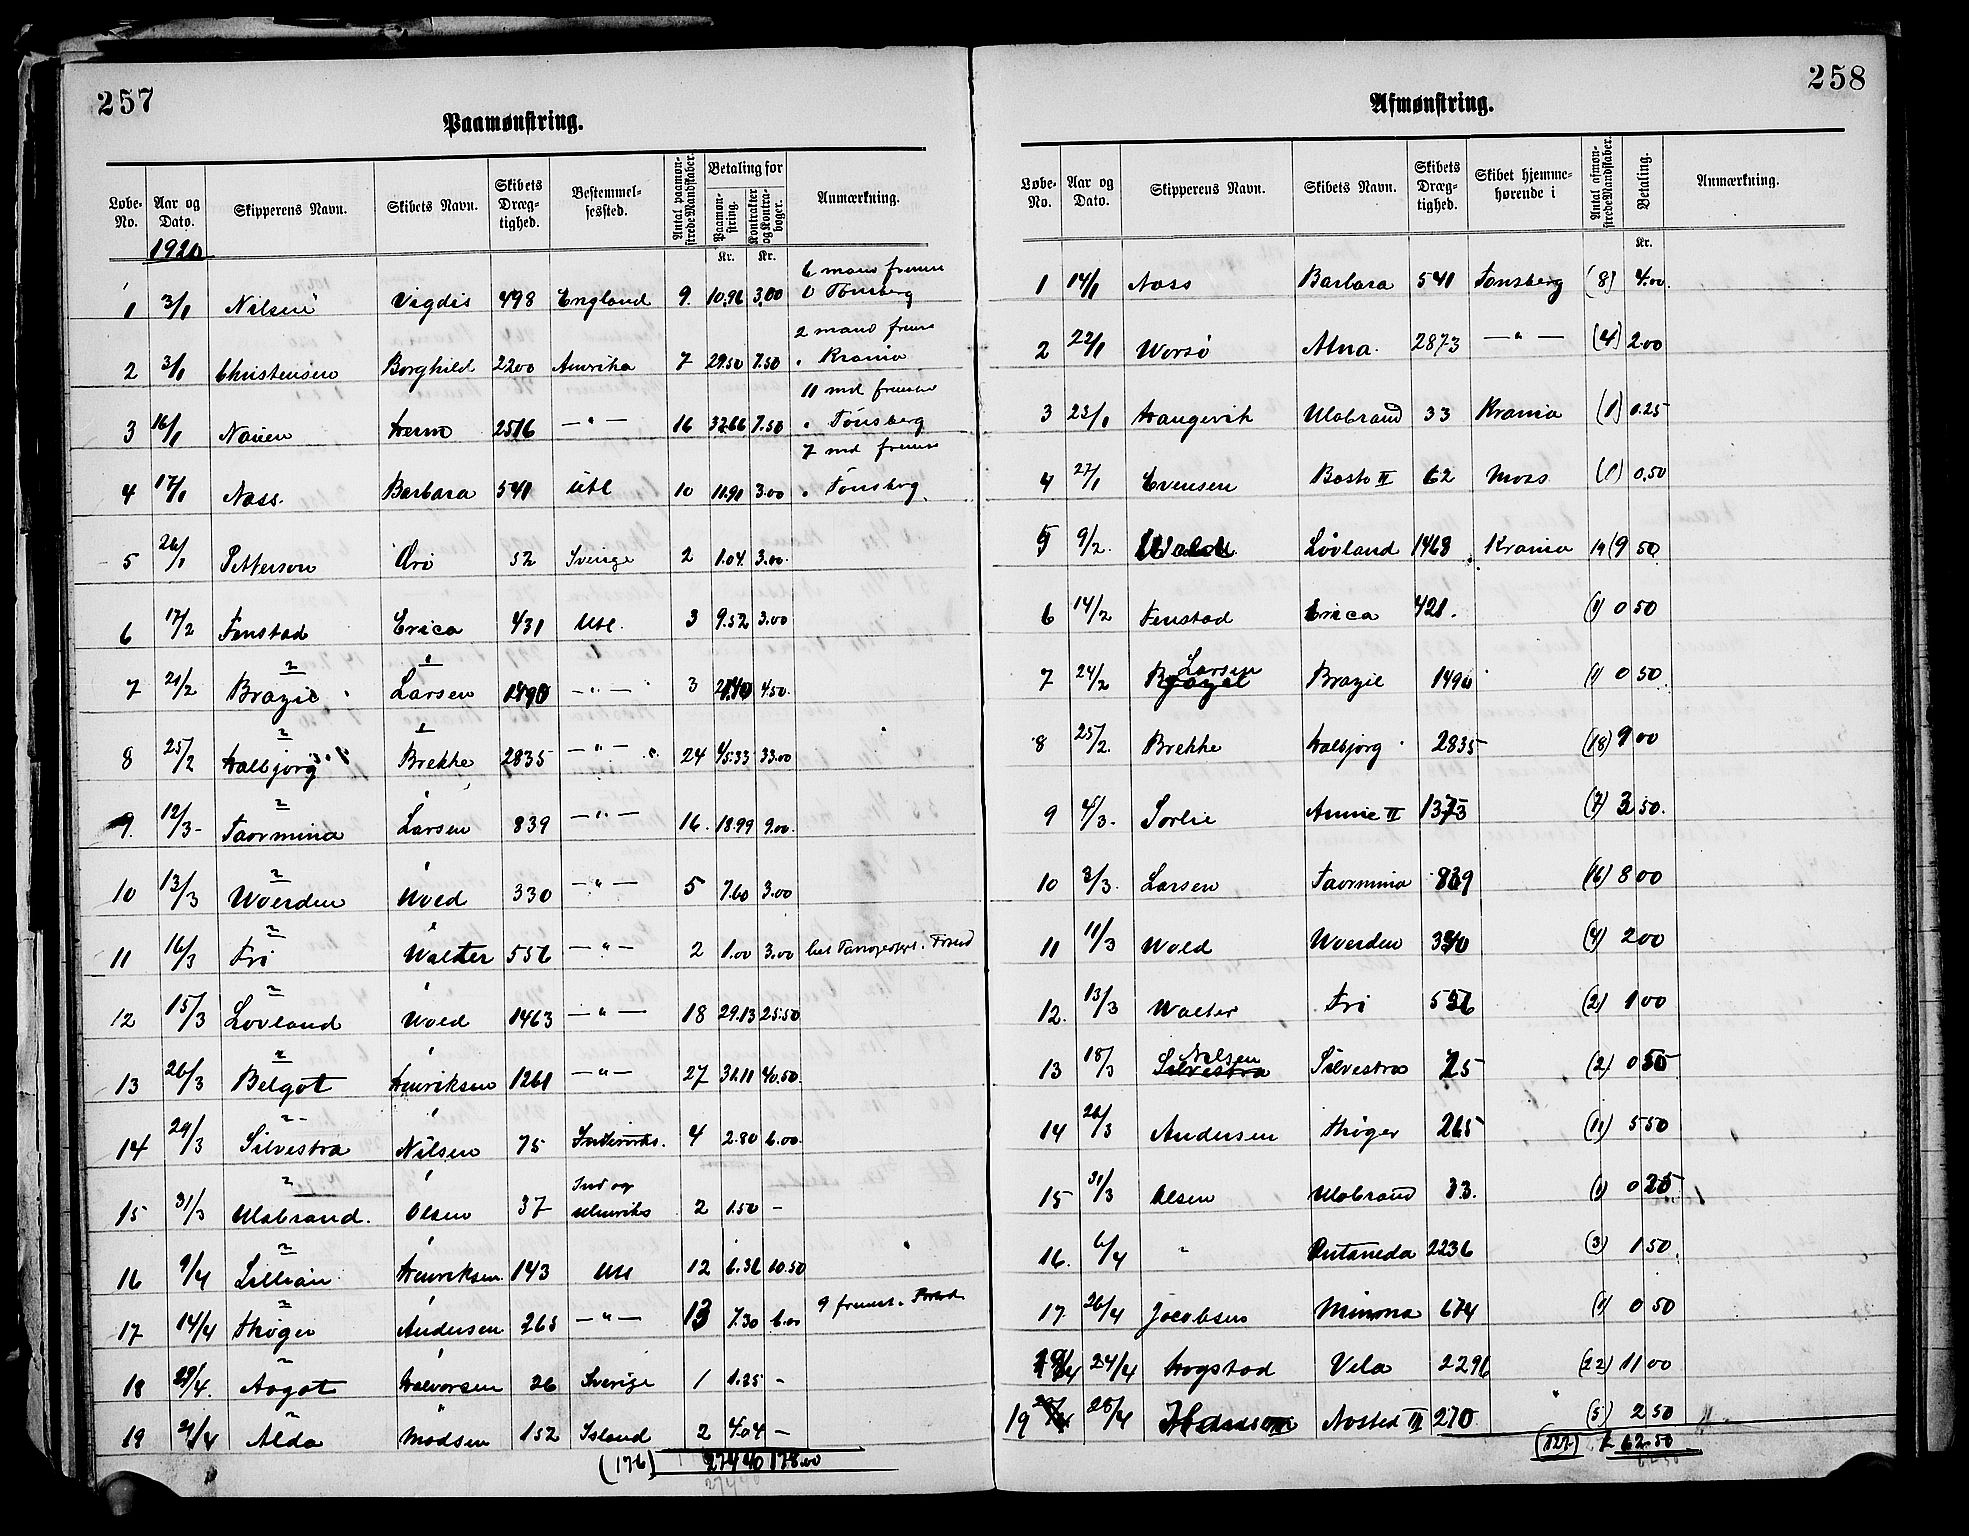 257
Paamønstring.
Løbe-No. Aar og Dato. Skipperens Navn. Skibets Navn. Skibets Dræg-tighed. Bestemmel-sessted. Antal paamøn-strede Mandskaber. Betaling for Paamøn-string. Kr. Kontrakter og Kontra-boger. Kr. Anmærkning.
1920
1 3/1 Nilsen Vigdis 498 England 9. 10.96 3.00 6 mand fremm Tønsberg
2 3/1 Christensen Borghild 2200 Amerika 7 29.50 7.50 2 mand fremm Krania
3 16/1 Nauen 2516 —"— 16 32.66 7.50 11 md fremm Tønsberg
4 17/1 Nass. Barbara 541 Utl 10 11.91 3.00 7 md fremm Tønsbrg.
5 26/1 Petterson Örö 52 Sverige 2 1.04 3.00
6 17/2 Fonstad Erica 431 Utl. 3 9.52 3.00
7 21/2 Brazil Larsen 1490 —"— 3 4.50
8 25/2 Halbjørg Brekke 2835 —"— 24 45.33 33.00
9. 12/3 Taormina Larsen 839 —"— 16. 18.99 9.00
10 13/3 Woerden Wold 330 —"— 5 7.60 3.00
11 16/3 Fri Walter 556 —"— 2 1.00 3.00
12 15/3 Lovland Wold 1463 —"— 18 29.13 25.50
13 26/3 Belgot Henriksen 1261 —"— 27 31.11 40.50
14 29/3 Silvestra Nilsen 75 4 2.80 6.00
15 31/3 Ulabrand. Olsen 37 Ind og Utenriks 2 1.50 —
16 9/4 Lillian Henriksen 143 Utl 12 6.36 10.50
17 14/4 Thoger Andersen 265 —"— 13 7.30 6.00 9 fremst.
18 29/4. Aagot Halvorsen 26 Sverige 1 1.25 —
19 29/4 Alda Madsen 152 Island 2 4.04 —
(176) 274 40 178.00
274 40
258
Afmønstring.
Løbe-No. Aar og Dato. Skipperens Navn. Skibets Navn. Skibets Dræg-tighed. Skibet hjemme-hørende i Antal afmøn-strede Mandskaber. Betaling. Kr. Anmærkning.
1 14/1 Nass Barbara 541 Tønsberg (8) 4.00
2 22/1 Worsö Alna. 2873 —"— (4) 2.00
3 23/1 Haugevik Ulabrand 33 Krania (1) 0.25
4 27/1 Evensen Bastö II 62 Moss (1) 0.50
5 9/2. Lövland 1463 Krania 19 9 50
6 14/2 Fonstad Erica 421. (1) 0 50
7 24/2 Larsen Brazil 1490 (1) 0 50
8 25/2. Brekke Halbjørg 2835 (18) 9 00
9 4/3. Sorlie Annie II 1373 (7) 3 50.
10 3/3. Larsen Taormina 839 (16) 8 00
11 11/3 Wold Woerden 330 (4) 2 00
12. 13/3 Walter Fri 556 (2) 1 00
13 18/3 Nilsen Silvestra 75 (2) 0 50
14 26/3 Andersen Thoger 265 (11) 5 50
15 31/3 Olsen Ulabrand 33. (1) 0 25
16. 6/4 " Antaneda 2236 (3) 1 50.
17. 26/4 Jacobsen Minona 674 (1) 0 50
24/4 Hogstad Vela 2296 (22) 11 00
19 28/4 Hansson Aasted III 270 (5) 2 50
(127) k 62.50
62 50